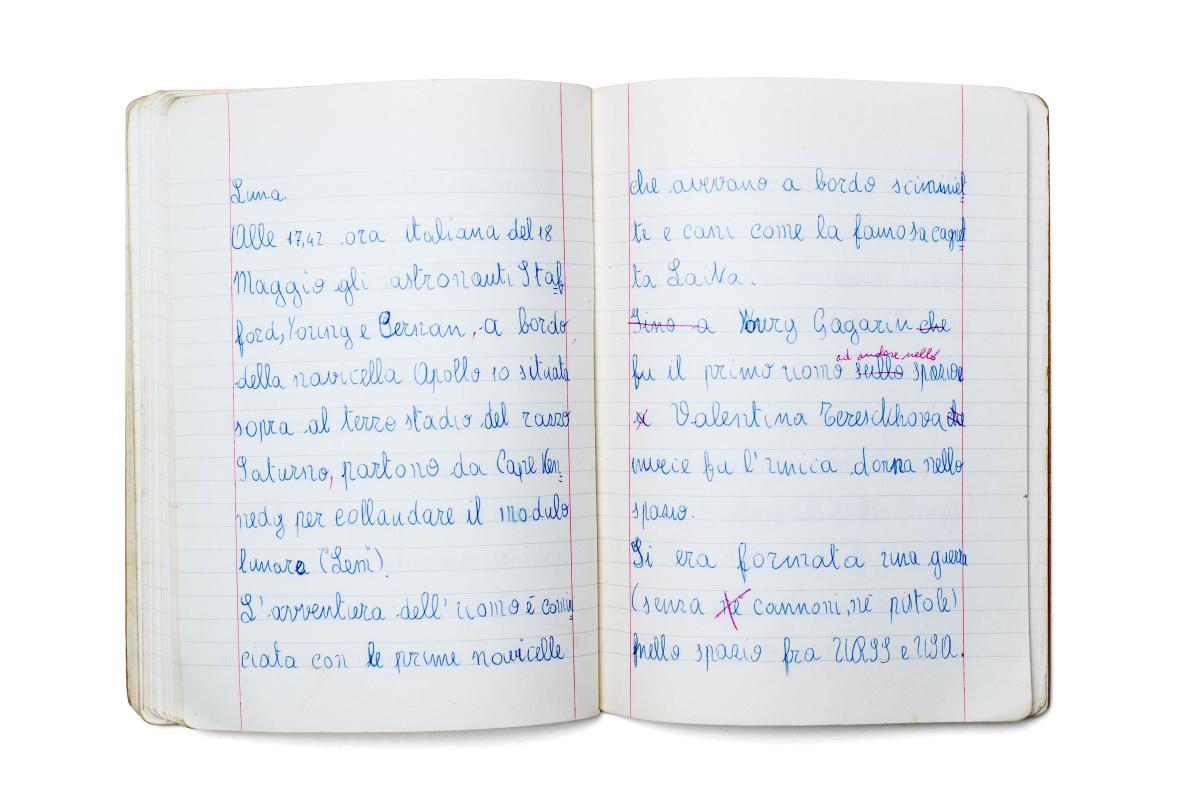 Luna.
Alle 17,42 ora italiana del 18
Maggio gli astronauti Staf
ford, Young e Cernan, a bordo
della navicella Apollo 10 situata
sopra al terzo stadio del razzo
Saturno, partono da Cape Ken
nedy per collaudare il modulo
lunare ("Lem").
L'avventura dell'uomo è comin
ciata con le prime navicelle
che avevano a bordo scimmiet
te e cani come la famosa cagnet
ta Laika.
Fino a Youry Gagarin che
ad andare nello
fu il primo uomo sullo spazio
e Valentina Tereschhova che
invece fu l'unica donna nello
spazio.
Si era formata una guerra
(senza né cannoni, né pistole)
nello spazio fra URSS e USA.